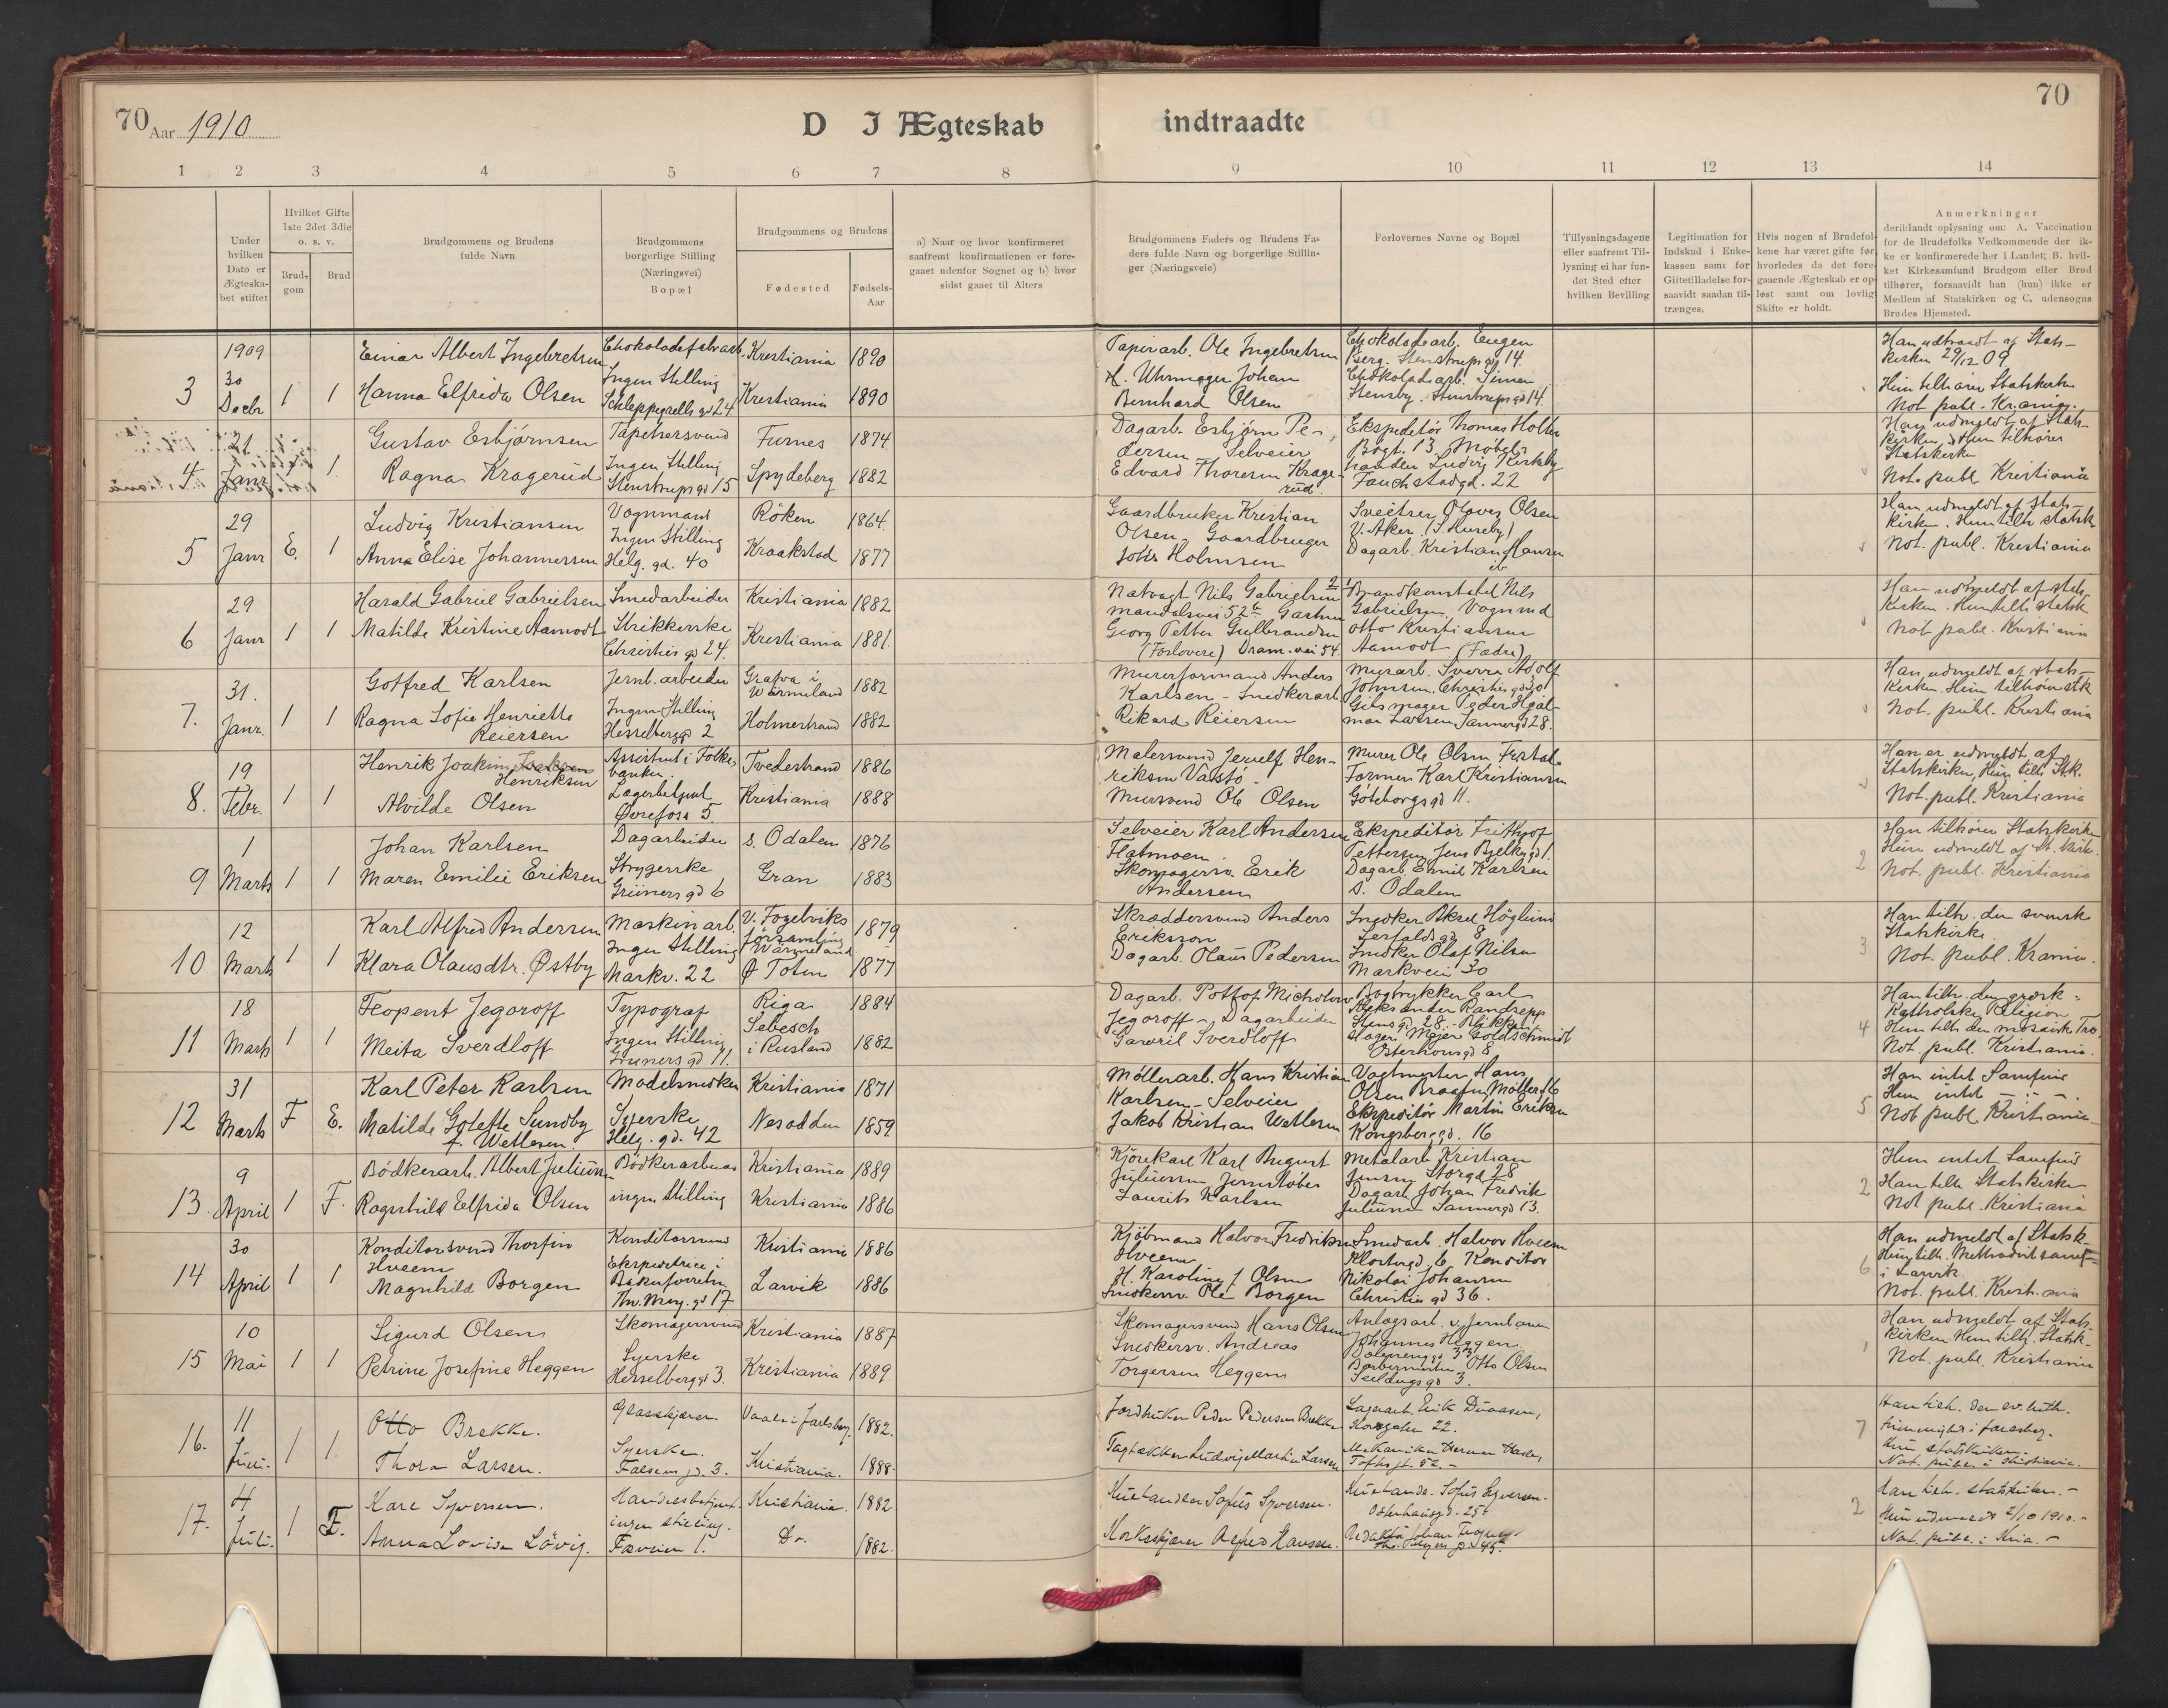 70 Aar 1910
D I Ægteskab indtraadte
70
1 2 3 4 5 6 7 8 9 10 11 12 13 14
Under hvilken Dato er Ægteska-bet stiftet
Hvilket Gifte 1ste 2det 3die o. s. v.
Brud-gom
Brud
Brudgommens og Brudens fulde Navn
Brudgommens borgerlige Stilling (Næringsvei) Bopæl
Brudgommens og Brudens
Fødested
Fødsels-Aar
a) Naar og hvor konfirmeret saafremt konfirmationen er fore-gaaet udenfor Sognet og b) hvor sidst gaaet til Alters
Brudgommens Faders og Brudens Fa-ders fulde Navn og borgerlige Stillin-ger (Næringsveie)
Forlovernes Navne og Bopæl
Tillysningsdagene eller saafremt Til-lysning ei har fun-det Sted efter hvilken Bevilling
Legitimation for Indskud i Enke-kassen samt for Giftetilladelse for-saavidt saadan til-trænges.
Hvis nogen af Brudefol-kene har været gifte før, hvorledes da det fore-gaaende Ægteskab er op-løst samt om lovlig Skifte er holdt.
Anmerkninger deriblandt oplysning om: A. Vaccination for de Brudefolks Vedkommende der ik-ke er konfirmerede her i Landet; B. hvil-ket Kirkesamfund Brudgom eller Brud tilhører, forsaavidt han (hun) ikke er Medlem af Statskirken og C. udensogns Brudes Hjemsted.
3
1909 30 Decbr
1 1
Einar Albert Ingebretsen
Hanna Elfrida Olsen
Chokoladefabrarb.
Ingen Stilling
Schleppegrells gd 24
Kristiania 1890
Kristiania 1890
Papirarb. Ole Ingebretsen
H. Uhrmager Johan
Bernhard Olsen
Chokoladearb. Eugen
Berg. Stenstrups gd 14.
Chokoladearb. Simen
Stensby. Stenstrups gd 14.
Han udtraadt af Stats-
kirken 29/12 09
Hun tilhører Statskirken
Not. publ. Kr.ania.
4
21 Janr
1
Gustav Esbjørnsen
Ragna Kragerud
Tapetsersvend
Ingen Stilling
Stenstrups gd 15
Furnes 1874
Spydeberg 1882
Dagarb. Esbjørn Pe-
dersen Selveier
Edvard Thoresen Krage-
rud.
Ekspeditør Thomas Holter
Bogt. 13. Møbel-
handler Ludvig Kirkeby
Fauchstadgd. 22
Han udmeldt af Stats-
kirken, Hun tilhører
Statskirken
Not. publ. Kristiania
5
29 Janr
E. 1
Ludvig Kristiansen
Anna Elise Johannessen
Vognmand
Ingen Stilling
Helg. gd. 40
Röken 1864
Kraakstad 1877
Gaardbruker Kristian
Olsen - Gaardbruger
Johs Holmsen
Sveitser Olaves Olsen
V. Aker. (S. Huseby)
Dagarb. Kristian Hansen
ib
Han udmeldt af Stats-
kirken. Hun tilh statsk
Not. publ. Kristiania
6
29 Janr
1 1
Harald Gabriel Gabrielsen
Matilde Kristine Aamodt
Smedarbeider
Strikkerske
Christies gd 24.
Kristiania 1882
Kristiania 1881.
Natvagt Nils Gabrielsen
Georg Petter Gulbrandsen
(Forlovere) Dram. vei 54.
Brandkonstabel Nils
Gabrielsen, Vognmd
Otto Kristiansen
Aamodt (Fædre)
Han udmeldt af stats
kirken. Hun tilh statsk
Not publ. Kristiania
7.
31. Janr.
1 1
Gotfred Karlsen
Ragna Sofie Henriette
Reiersen
Jernb. arbeider
Ingen Stilling
Hesselbergsgd 2
Grafva i
Wärmeland 1882
Holmestrand 1882
Murerformand Anders
Karlsen - Snedkerarb
Rikard Reiersen
Murarb. Sverre Adolf
Johnsen. Christies gd 30
Gibsmager Peder Hjal-
mar Larsen, Sannergd 28.
Han udmeldt af stats-
kirken. Hun tilhører stk
Not. publ. Kristiania
8.
19 Febr.
1 1
Henrik Joakim
Henriksen
Alvilde Olsen
Assistent i Folke-
banken.
Lagerbetjent
Øvrefoss 5.
Tvedestrand 1886
Kristiania 1888
Malersvend Jerulf Hen-
riksen Vastö.
Mursvend Ole Olsen
Murer Ole Olsen
Former Karl Kristiansen
Göteborgs gd 11.
Han er udmeldt af
Statskirken, Hun tilh Stk.
Not. publ. Kristiania
9
1 Marts
1 1
Johan Karlsen
Maren Emilie Eriksen
Dagarbeider
Strygerske
Grüners gd 6
s. Odalen 1876
Gran 1883
Selveier Karl Andersen
Flatmoen.
Skomagersv. Erik
Andersen
Ekspeditør Frithjof
Pettersen, Jens Bjelkesgd 1.
Dagarb. Emil Karlsen
S. Odalen
2
Han tilhører Statskirken
Hun udmeldt af St. kirk.
Not. publ. Kristiania
10
12 Marts
1 1
Karl Alfred Andersen
Klara Olausdtr. Østby
Maskinarb.
Ingen Stilling
Markv. 22
V. Fogelviks
församling
Wärmeland 1879
Ø Toten 1877
Skræddersvend Anders
Eriksson
Dagarb. Olaus Pedersen
Snedker Aksel Höglund
Jerfaldsgd 8
Snedker Olaf Nilsen
Markvein 30
3
Han tilh. den svenske
Statskirke
Not. publ. Krania.
11
18 Marts
1 1
Feopent Jegoroff
Meita Sverdloff
Typograf
Ingen Stilling
Gruners gd 11
Riga 1884
Sebesch
i Rusland 1882
Dagarb. Pottof Micholow
Jegoroff - Dagarbeider
Gavril Sverdloff
Bogtrykker Carl
Aleksander Randrepp
Stensgd 28. - Blikken-
slager Mejer Goldschmidt
Osterhausgd 8
4
Han tilh. den græsk-
Katholske Religion
Hun tilh den mosaiske Tro
Not publ. Kristiania.
12
31 Marts
F E.
Karl Peter Karlsen
Matilde Gotefte Sundby
f. Wetlesen
Modelsnedker
Syerske
Helg. gd. 42
Kristiania 1871
Nesodden 1859
Møllerarb. Hans Kristian
Karlsen - Selveier
Jakob Kristian Wetlesen
Vagtmester Hans
Olsen Braaten, Møllergd 6
Ekspeditör Martin Eriksen
Kongsberggd. 16
5
Han intet Samfund
Hun intet
Not publ Kristiania
13
9 April
1 F.
Bödkerarb. Albert Juliussen
Ragnhild Elfrida Olsen
Bödkerarbeider
ingen Stilling
Kristiania 1889
Kristiania 1886
Kjörekarl Karl August
Juliussen Jernstöber
Laurits Karlsen
Metalarb Kristian
Jensen Storgd 28
Dagarb. Johan Fredrik
Juliussen Sannergd 13.
2
Hun intet Samfund
Han tilh Statskirken
Not publ Kristiania
14
30 April
1 1
Konditorsvend Thorfin
Hveem
Magnhild Borgen
Konditorsvend
Ekspeditrice i
Bakerforretn.
Th. Mey. gd 17
Kristiania 1886
Larvik 1886
Kjöbmand Halvor Fredriksen
Hveem
H. Karoline f Olsen
Snedkersv. Ole Borgen
Smedarb. Halvor Hveem
Klostergd. 6 Konditor
Nikolai Johansen
Christies gd 36.
6
Han udmeldt af Statsk-
Hun tilh. Methodistsamf
i Larvik.
Not. publ. Kristiania
15
10 Mai
1 1
Sigurd Olsen
Petrine Josefine Heggen
Skomagersvend
Syerske
Hesselberggd 3.
Kristiania 1887
Kristiania 1889.
Skomagersvend Hans Olsen
Snedkersv. Andreas
Torgersen Heggen
Anlagsarb. v. Jernbanen
Johannes Heggen.
Dælenenggd 33
Barbermester Otto Olsen
Seildugsgd 3.
1
Han udmeldt af Stats
kirken. Hun tilh. Statsk-
Not. publ. Kristiania
16.
11 Juni.
1 1.
Otto Brekke.
Thora Larsen.
Glasskjærer
Syerske.
Falsens gd. 3.
Vaale i Jarlsberg. 1882.
Kristiania. 1888.
Jordbruker Peder Pedersen Brekke
Tagtækker Ludvig Martin Larsen
Lagerarb. Erik
22.
Mekaniker Herman
Toftes gt. 52. -
7
Han tilh. den ev. luth.
frimenighed i Jarlsberg.
Hun statskirken.
Not. publ. i Kristiania.
17.
4 Juli.
1 F.
Karl Syversen.
Anna Lovise Lövig.
Handelsbetjent.
ingen stilling.
Kristiania. 1882.
Do. 1882.
Kulhandler Sofus Syversen.
Korkskjærer Alfred Hansen.
Kulhandl. Sofus Syversen.
Osterhausgd. 25.
Redaktör Johan
2
Han tilh. statskirken. -
Hun udmeldt 2/10 1910. -
Not. publ. i Kria. -